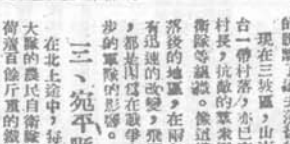 現在三坡區，山
台一帶村落，亦已
村長，抗敵的羣衆
衛隊等組織。像這
落後的地區，在兩
有迅速的改變，飛
，都是因爲在戰爭
步的軍隊的影響。
三、宛平縣
在北上途中，
大隊的農民自衛隊
荷着百餘斤重的